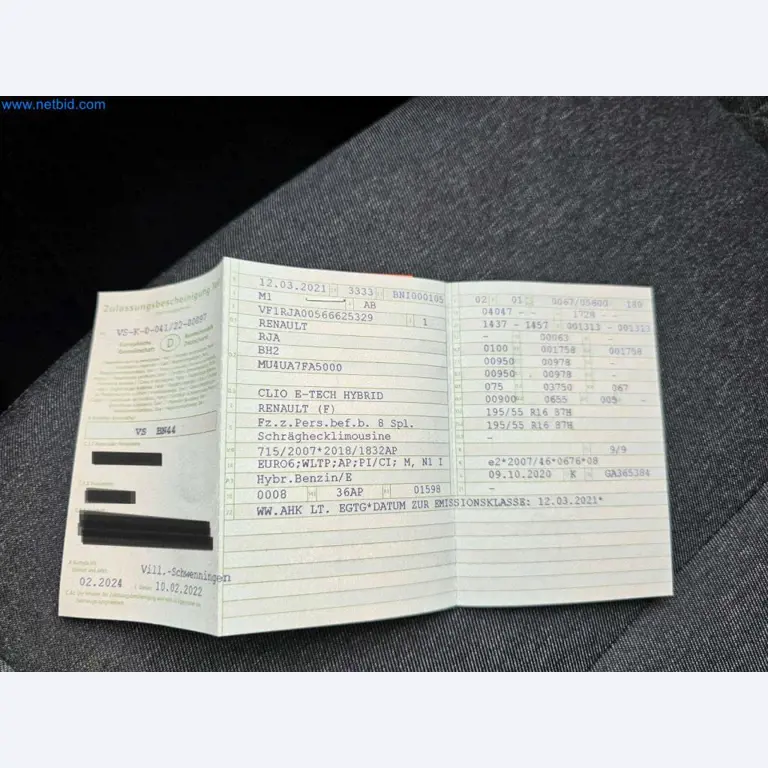 www.netbid.com
Zulassungsbescheinigung Teil
VS-K-0-041/22-00097
Europäische
Gemeinschaft
D
Bundesrepublik
Deutschland
VS BN44
02.2024
Vill.-Schwenningen
10.02.2022
12.03.2021 3333 BNI000105
M1 AB
VF1RJA00566625329 1
RENAULT
RJA
BH2
MU4UA7FA5000
CLIO E-TECH HYBRID
RENAULT (F)
Fz.z.Pers.bef.b. 8 Spl.
Schräghecklimousine
715/2007*2018/1832AP
EURO6;WLTP;AP;PI/CI; M, N1 I
Hybr.Benzin/E
0008 36AP 01598
WW.AHK LT. EGTG*DATUM ZUR EMISSIONSKLASSE: 12.03.2021*
02 01 0067/05600 180
04047 - - 1728 - -
1437 - 1457 001313 - 001313
- 00063 -
0100 001758 001758
00950 00978 -
00950 00978 -
075 03750 067
00900 0655 005 -
195/55 R16 87H
195/55 R16 87H
-
- 9/9
e2*2007/46*0676*08
09.10.2020 K GA365384
-